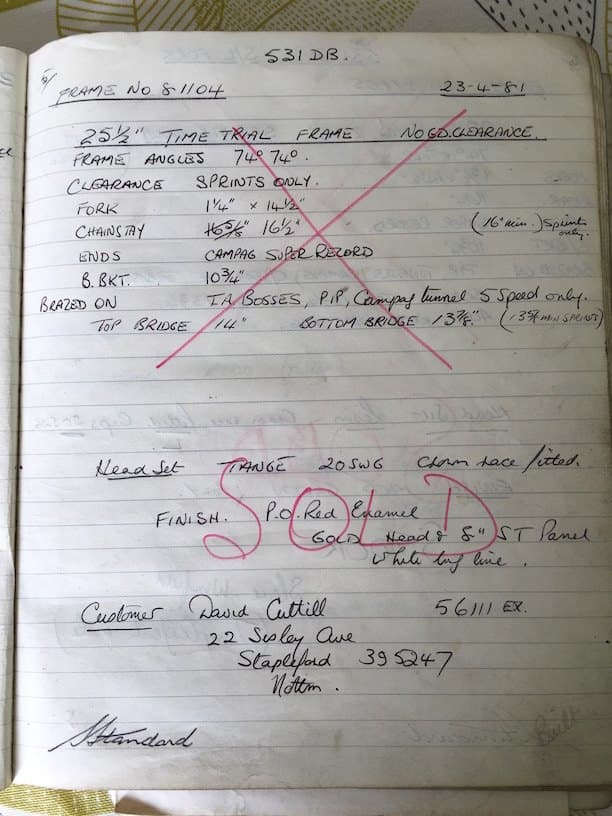 531 DB.
FRAME NO 81104 23-4-81
25½" TIME TRIAL FRAME NO GD. CLEARANCE.
FRAME ANGLES 74° 74°.
CLEARANCE SPRINTS ONLY.
FORK 1¼" × 14½"
CHAINSTAY 16⅝" 16½" (16" min.) Sprints only.
ENDS CAMPAG SUPER RECORD
B.BKT. 10¾"
BRAZED ON T.A BOSSES, P.I.P, Campag tunnel 5 Speed only.
TOP BRIDGE 14" BOTTOM BRIDGE 13⅞" (13⅝ MIN SPRINTS)
Head Set TANGE 20 SWG Crown race fitted.
SOLD
FINISH. P.O. Red Enamel
GOLD Head & 8" ST Panel
White lug line.
Customer David Cuttill 56111 EX.
22 Sisley Ave
Stapleford 395247
Nottm.
Standard